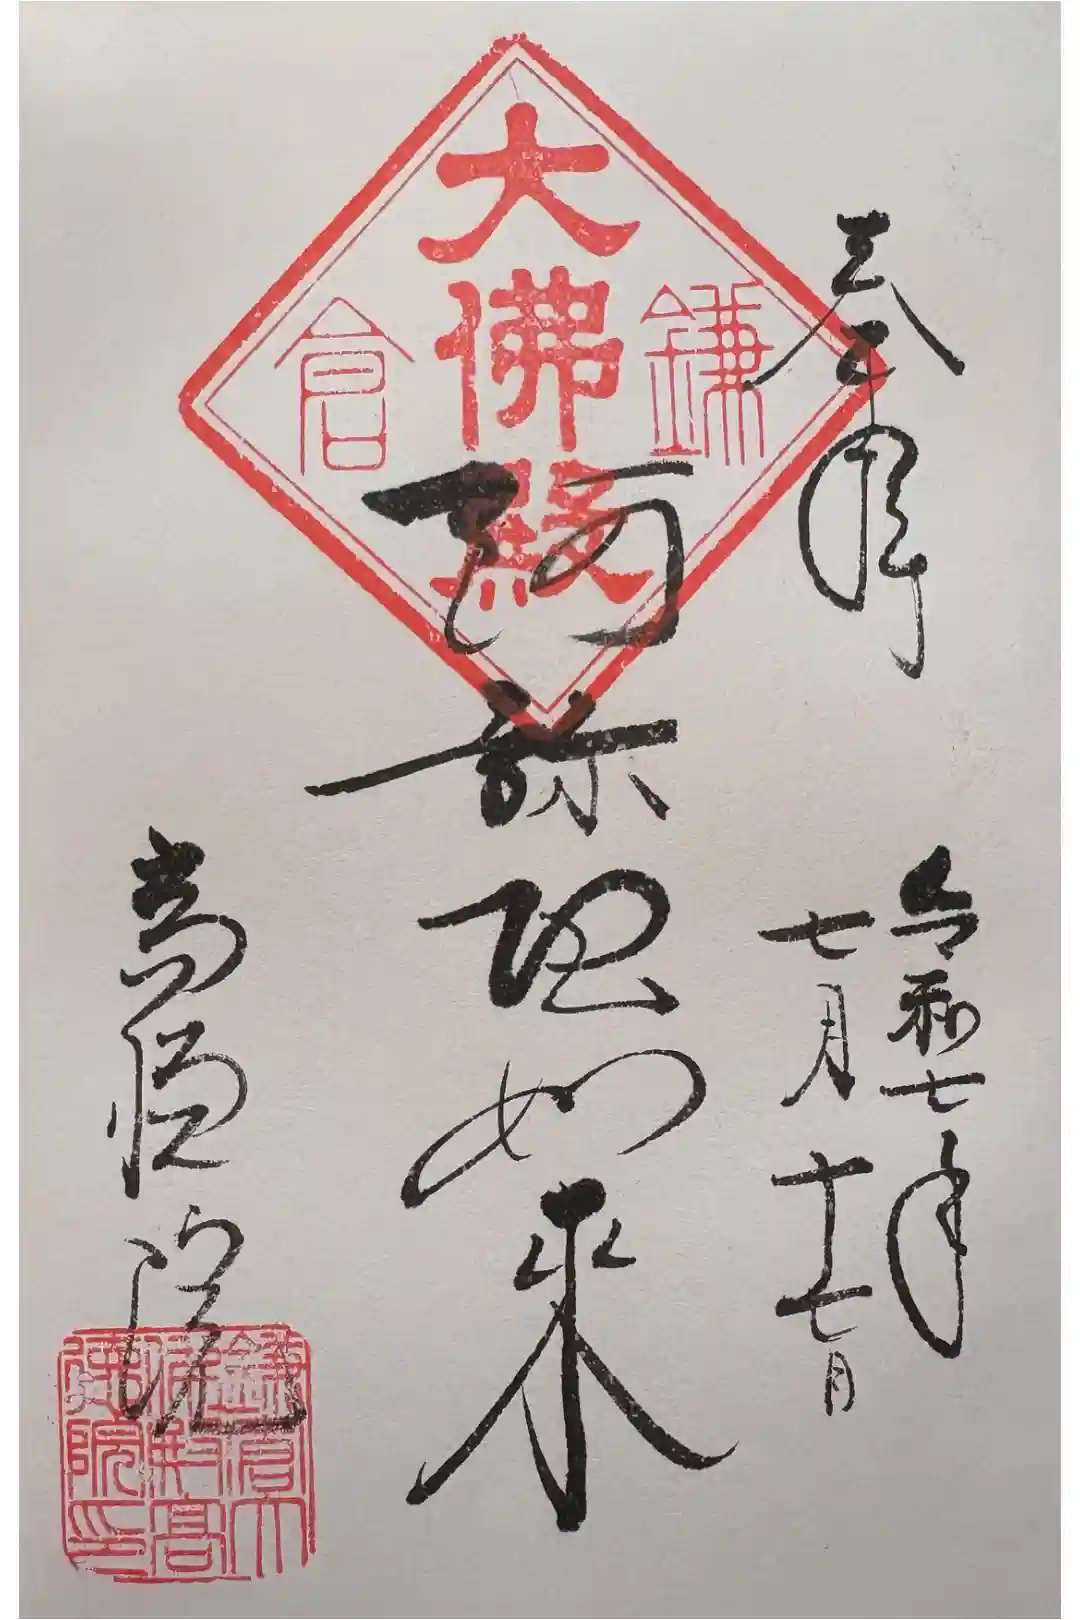 奉拝
令和七年
七月十七日
大佛殿
鎌倉
阿弥陀如来
高徳院
鎌倉大
佛刹高
徳院印